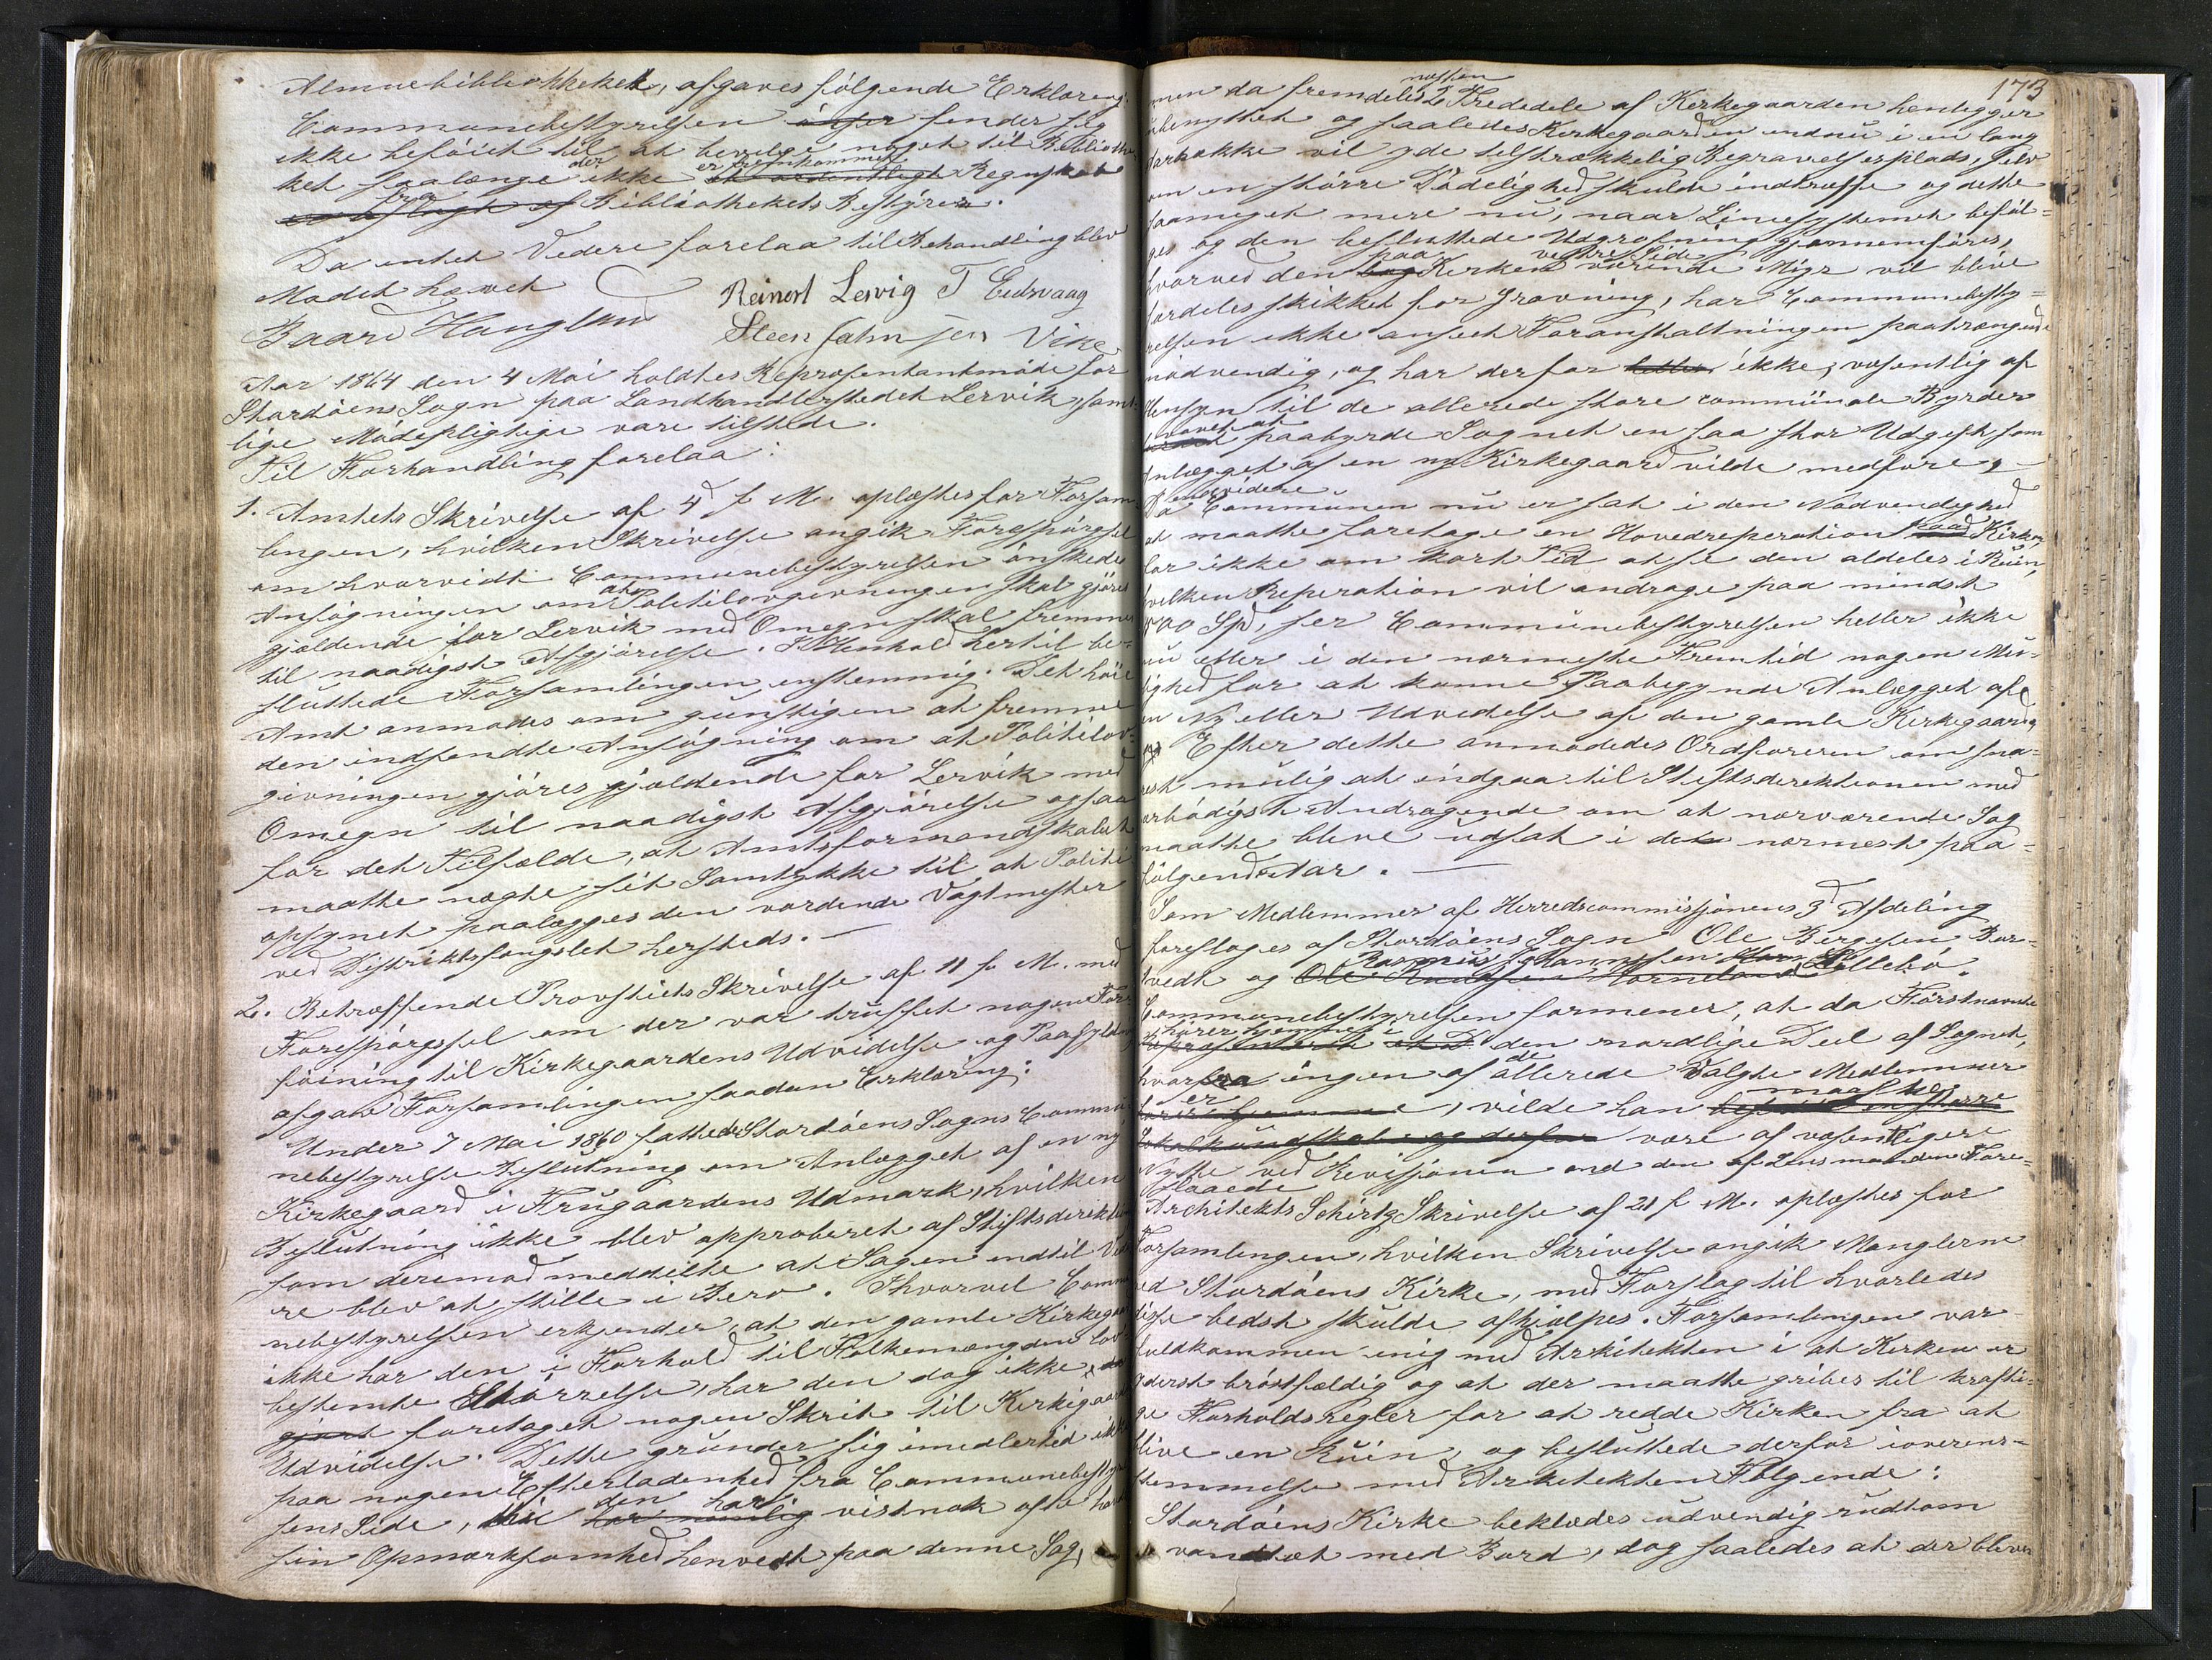 Almuebibliotheket, afgaves følgende Erklæring:
Communebestyrelsen anser finder sig
ikke beføiet til at bevilge noget til Bibliothe-
ket saalænge der ikke er fremkommet et ordentligt Regnskab
er aflagt af fra Bibliothekets Bestyrer.
Da intet Videre forelaa til Behandling blev
Mødet hævet
Reinert Lervig T Eidsvaag
Baard Haugland
Steen Jahnsen Vike
Aar 1864 den 4 Mai holdtes Repræsentantmøde for
Stordøens Sogn paa Landhandlerstedet Lervik, samt-
lige Mødepligtige vare tilstede.
Til Forhandling forelaa:
1. Amtets Skrivelse af 4d f. M. oplæstes for Forsam-
lingen, hvilken Skrivelse angik Forespørgsel
om hvorvidt Communebestyrelsen ønskede
Ansøgningen om at Politilovgivningen skal gjøres
gjældende for Lervik med Omegn skal fremmes
til naadigst Afgjørelse. I Henhold hertil be-
sluttede Forsamlingen enstemmig: Det høie
Amt anmodes om gunstigen at fremme
den indsendte Ansøgning om at Politilov-
givningen gjøres gjældende for Lervik med
Omegn til naadigst Afgjørelse ogsaa
for det Tilfælde, at Amtsformandskabet
maatte nægte sit Samtykke til at Politi
opsynet paalægges den vordende Vagtmester
ved Distriktsfængslet hersteds. —
2. Betræffende Provstiets Skrivelse af 11 f. M. med
Forespørgsel om der var truffet nogen For-
føining til Kirkegaardens Udvidelse og Paafyldning
afgav Forsamlingen saadan Erklæring:
Under 7 Mai 1860 fattede Stordøens Sogns Commu-
nebestyrelse Beslutning om Anlægget af en ny
Kirkegaard i Frugaardens Udmark, hvilken
Beslutning ikke blev approberet af Stiftsdirektionen
som derimod meddelte at Sagen indtil Vide-
re blev at stille i Bero. Ihvorvel Commu-
nebestyrelsen erkjender, at den gamle Kirkegaard
ikke har den i Forhold til Folkemængden lov-
bestemte Størrelse, har den dog ikke
gjort foretaget nogen Skrit til Kirkegaardens
Udvidelse. Dette grunder sig imedlertid ikke
paa nogen Efterladenhed fra Communebestyrel-
sens Side, den har har nemlig vistnok ofte havt
sin Opmærksomhed henvedt paa denne Sag,
173
men da fremdeles næsten 2 Trededele af Kirkegaarden henligger
ubenyttet og saaledes Kirkegaarden endnu i en lang
Aarrække vil yde tilstrækkelig Begravelsesplads, selv
om en større Dødelighed skulde indtræffe og dette
saameget mere nu, naar Liniesystemet beføl-
ges og den besluttede Udgrøfning gjennemføres,
hvorved den bag paa Kirkens vestre Side værende Myr vil blive
særdeles skikket for Gravning, har Communebesty-
relsen ikke anseet Foranstaltningen paatrængende
nødvendig, og har derfor heller ikke, væsentlig af
Hensyn til de allerede store communale Byrder
vovet at paabyrde Sognet en saa stor Udgift som
Anlægget af en ny Kirkegaard vilde medføre, —
Da endvidere Communen nu er sat i den Nødvendighed
at maatte foretage en Hovedreperation paa Kirken,
for ikke om kort Tid at se den aldeles i Ruin,
hvilken Reperation vil andrage paa mindst
Spd, ser Communebestyrelsen heller ikke
nu eller i den nærmeste Fremtid nogen Mu-
lighed for at kunne Paabegynde Anlægget af
en Ny eller Udvidelse af den gamle Kirkegaard,
Efter dette anmodedes Ordføreren om sna-
rest mulig at indgaa til Stiftsdirektionen med
ærbødigst Andragende om at nærværende Sag
maatte blive udsat i det nærmest paa-
følgende Aar. —
Som Medlemmer af Herredscommissionens 3d Afdeling
foreslages af Stordøens Sogn Ole Bergesen Bor-
tvedt og Ole Knudsen Horneland Rasmus Johannessen Lillebø.
Communebestyrelsen formener, at da Førstnævnte
repræsenterer hører hjemme i den nordlige Deel af Sognet,
hvorfra ingen af de allerede Valgte Medlemmer
er, vilde han maaskee
Lokalkundskab og derfor være af væsentligere
Nytte ved Revisjonen end den af Lensmanden Fore-
slaaede
Architekts Schirtz Skrivelse af 21 f. M. oplæstes for
Forsamlingen, hvilken Skrivelse angik Manglerne
ved Stordøens Kirke, med Forslag til hvorledes
disse bedst skulde afhjælpes. Forsamlingen var
fuldkommen enig med Arkitekten i at Kirken er
yderst brøstfældig og at der maatte gribes til krafti-
ge Forholdsregler for at redde Kirken fra at
blive en Ruin, og besluttede derfor i overens-
stemmelse med Arkitekten Følgende:
Stordøens Kirke beklædes udvendig rundtom
vandtæt med Bord, dog saaledes at der bliver